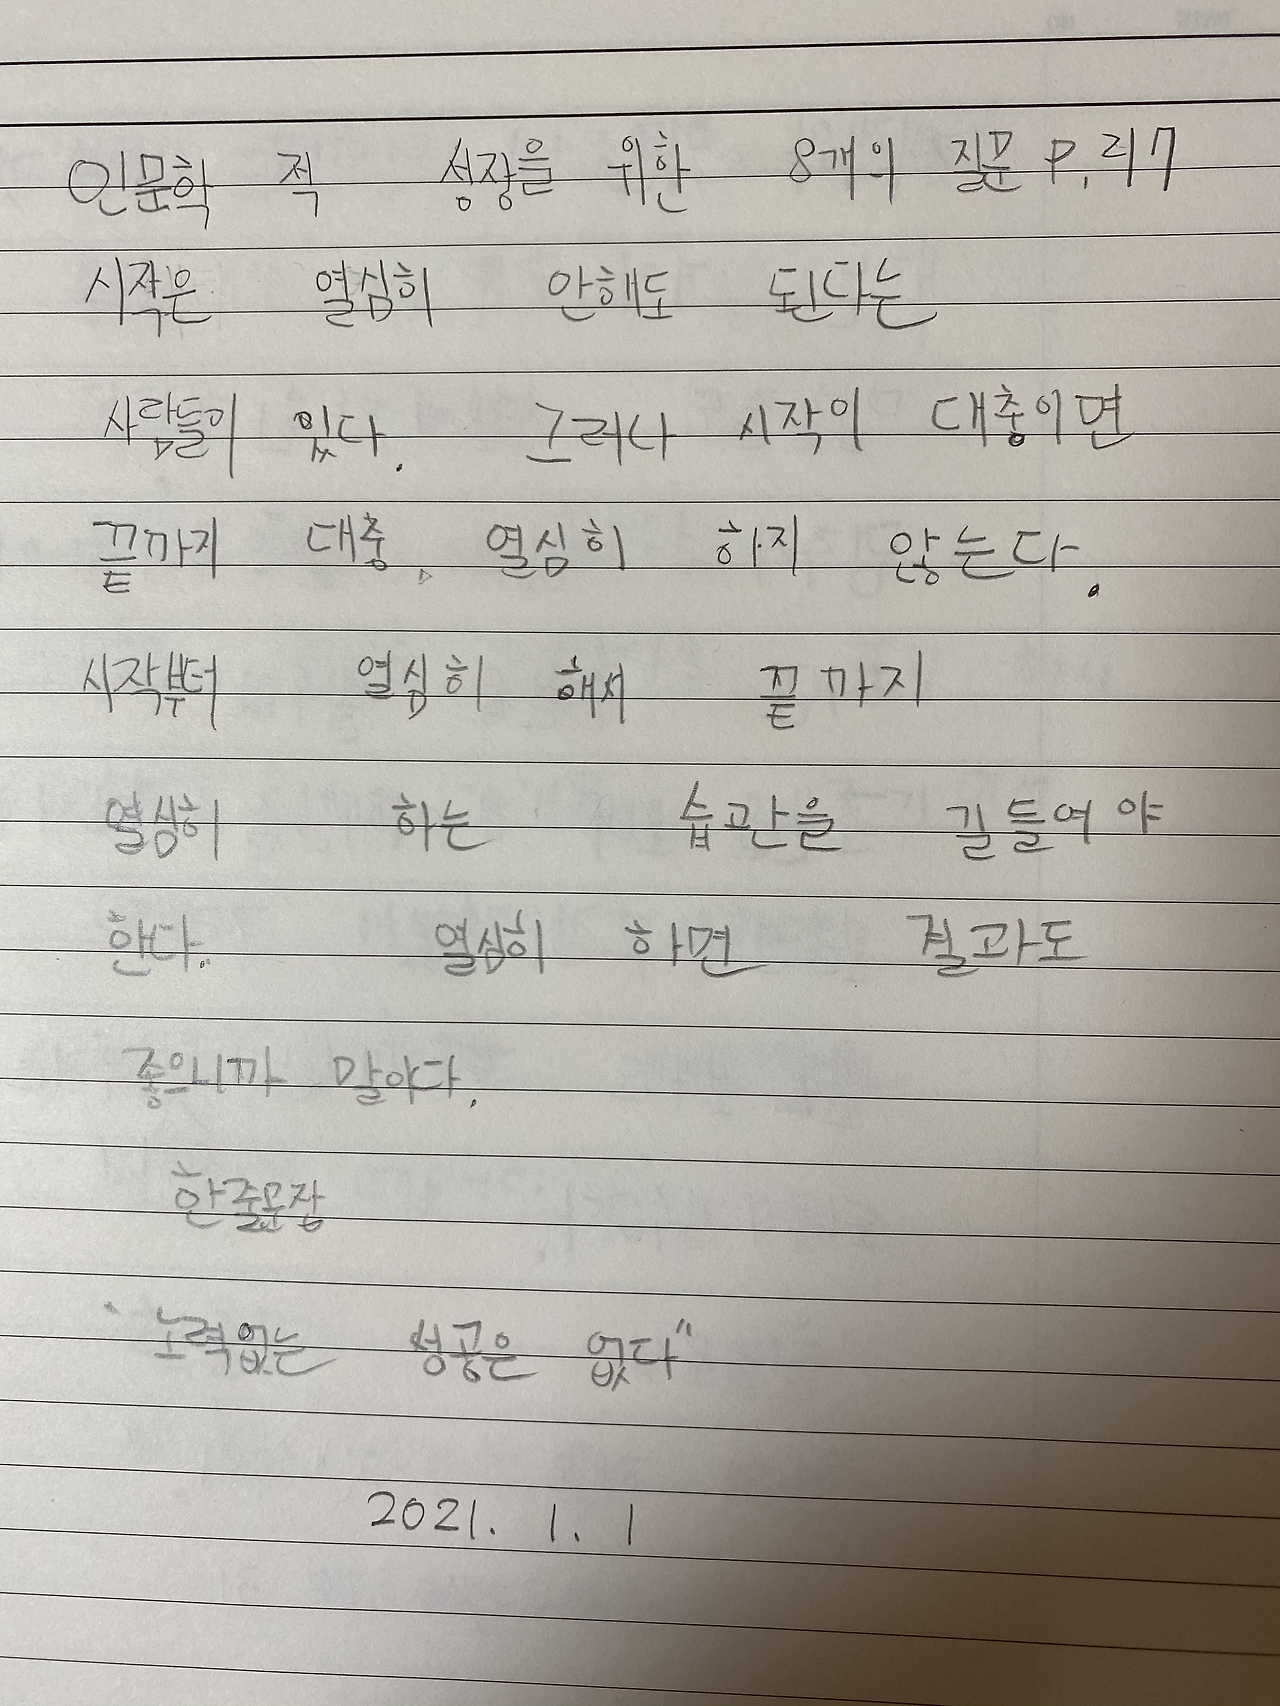 인문학 적 성장을 위한 8개의 질문 P.217
시작은 열심히 안해도 된다는
사람들이 있다. 그러나 시작이 대충이면
끝까지 대충, 열심히 하지 않는다.
시작부터 열심히 해서 끝까지
열심히 하는 습관을 길들여야
한다. 열심히 하면 결과도
좋으니까 말이다.
한줄문장
"노력없는 성공은 없다"
2021. 1. 1